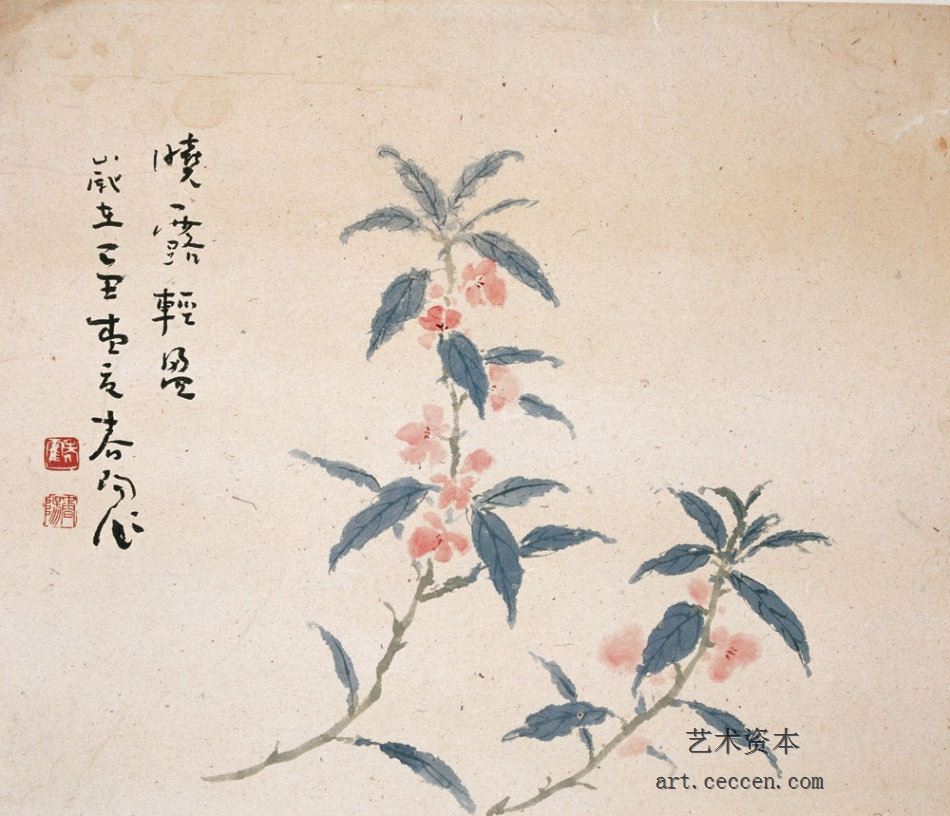 曉露輕盈
歲在丑春陽作
艺术资本
art.ceccen.com